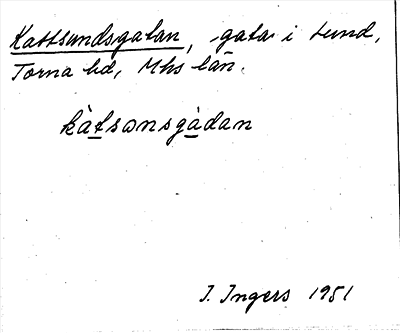 Kattsundsgatan, gata i Lund,
Torna hd, Mhs län.
kàtsənsgàdan
I. Ingers 1951